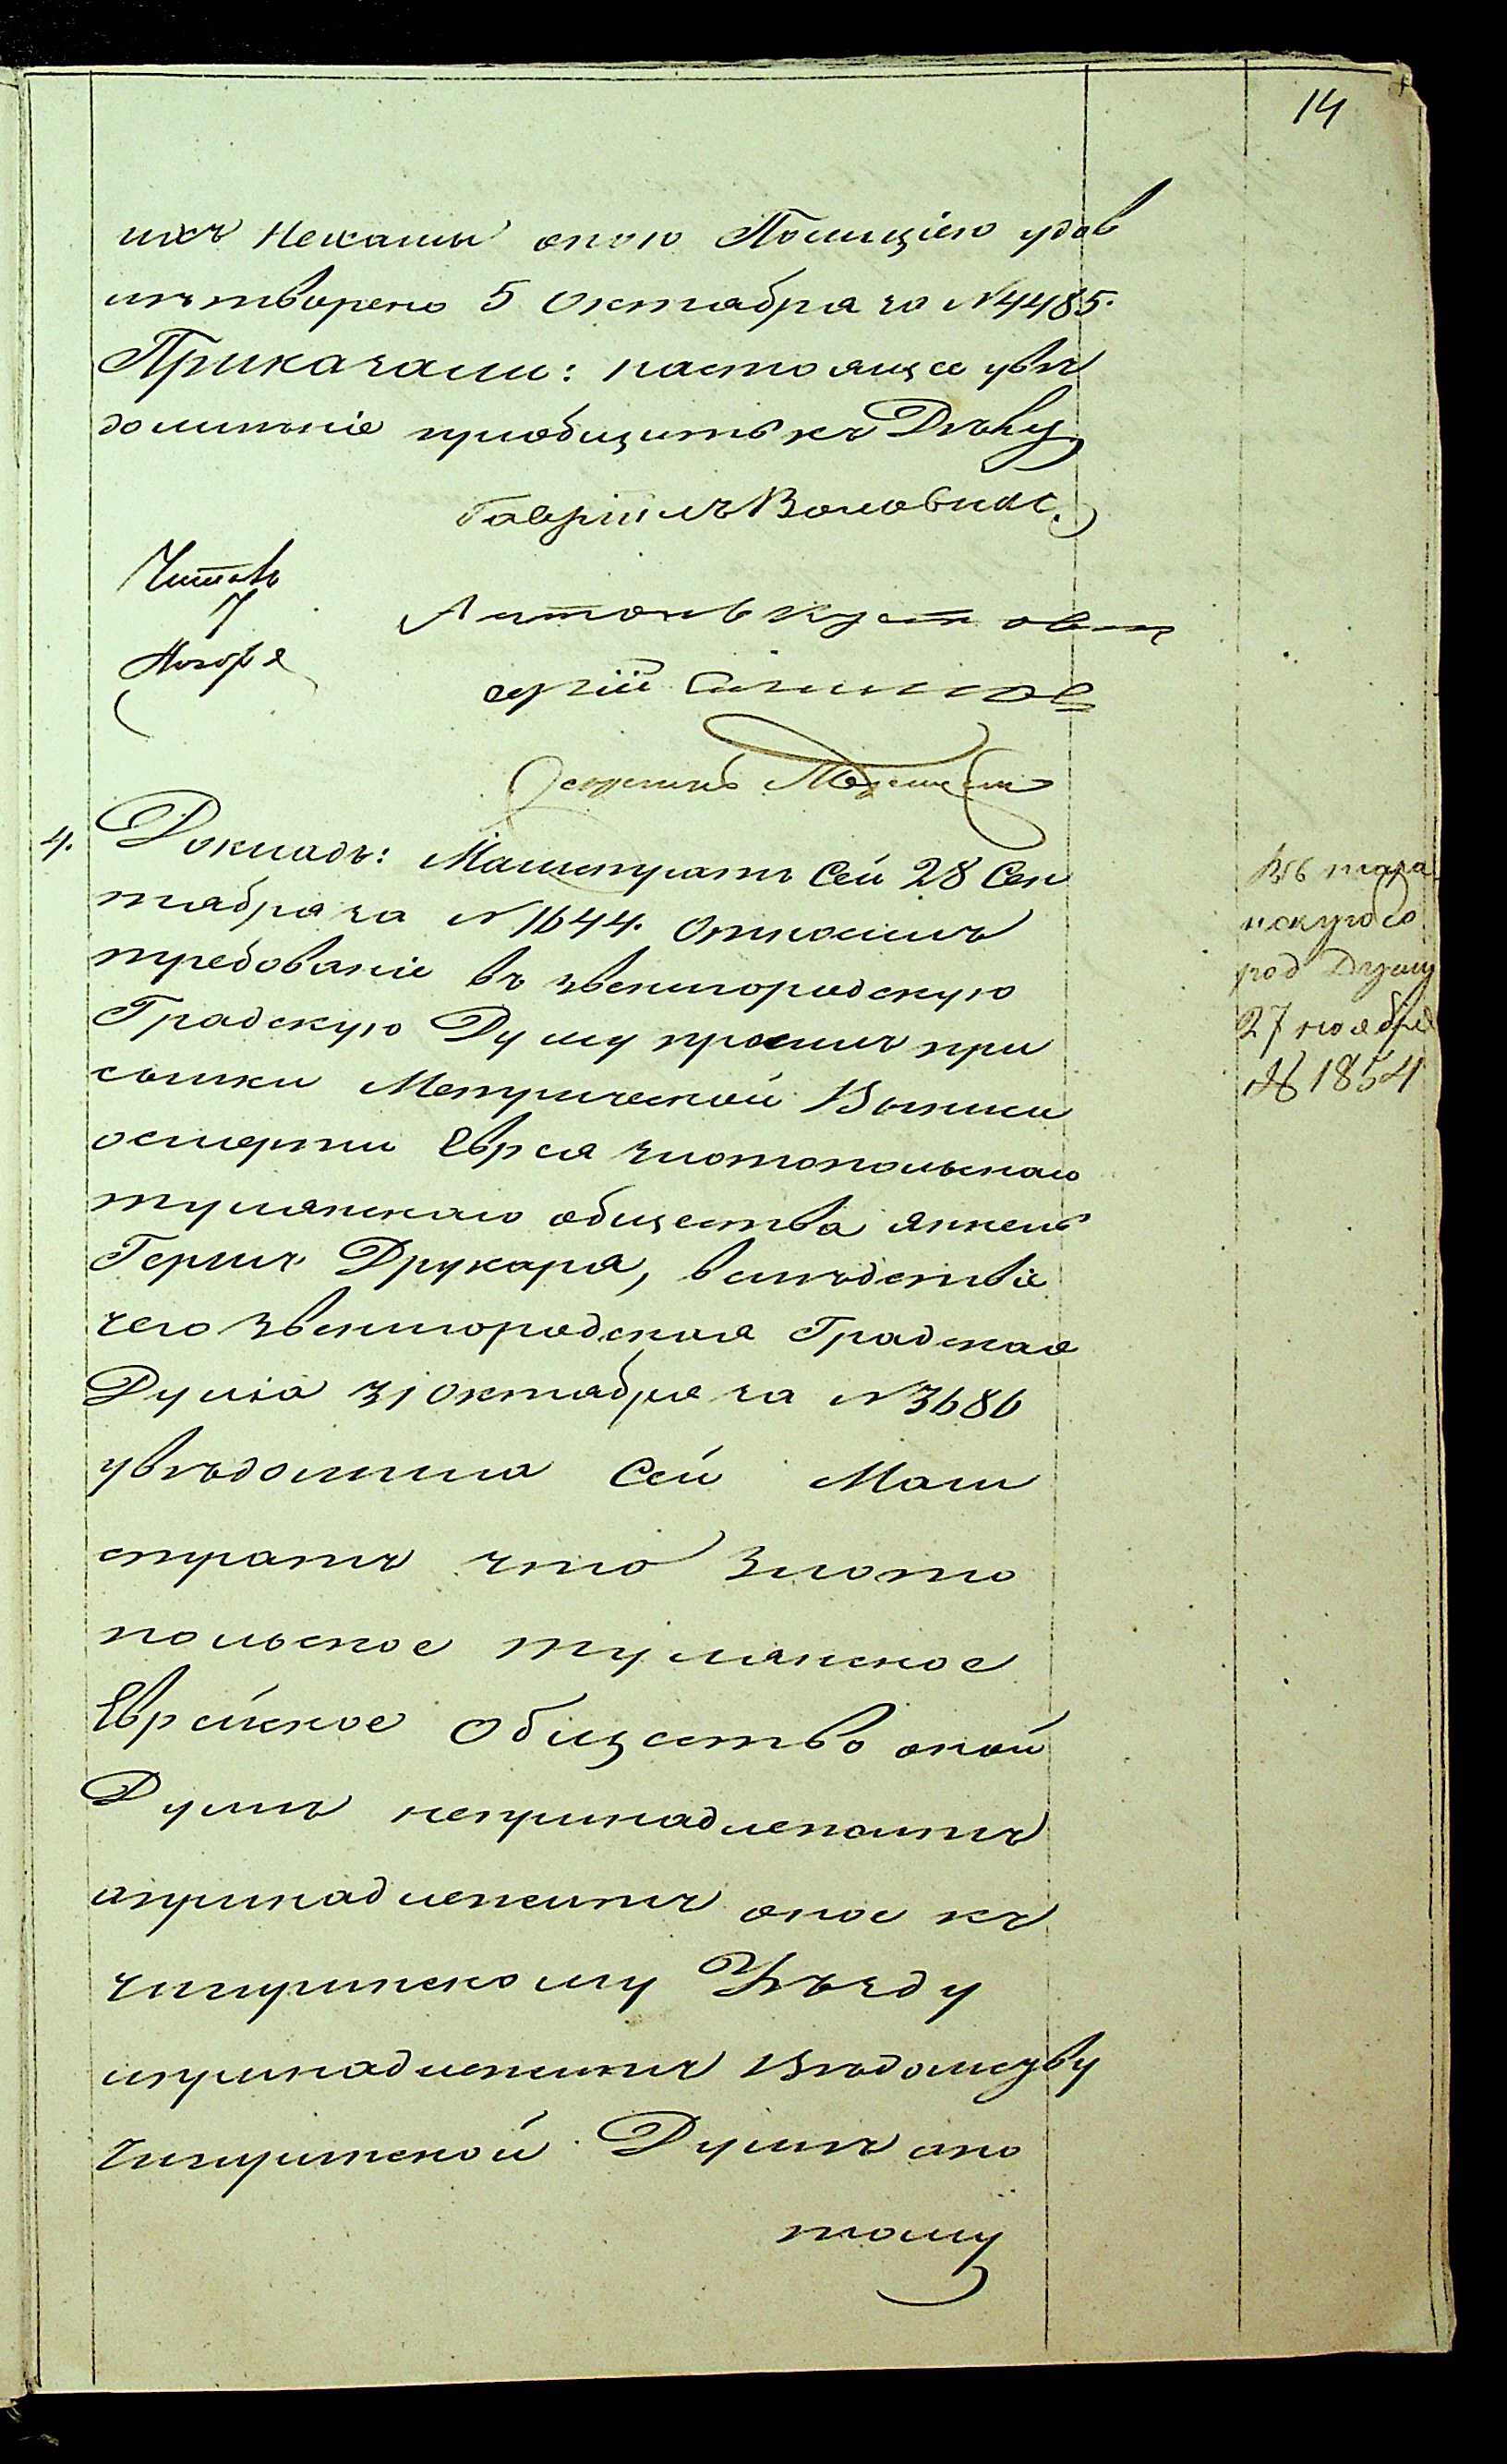 14
ихъ оною Полиціею удов
лѣтворено 5 Октября за N 4485.
Приказали: настоящее увѣ
домленіе пріобщить къ Дѣлу
Гавріилъ
Читалъ
7
Ноября
Антонъ
4. Докладъ: Магистратъ Сей 28 Сен
тября за N 1644. относилъ
требованіе въ Звенигородскую
Градскую Думу прося при
сылки Метрической Выписи
осмерти Еврея Златопольскаго
туманскаго общества Янкеля
Герша Друкаря, вслѣдствіе
чего Звенигородская Градская
Дума 31 Октября за N 3686
увѣдомила Сей Маги
стратъ что Злато
польское туманское
Еврейское Общество оной
Думѣ непринадлежитъ
апринадлежитъ оное къ
Чигиринскому Уѣзду
ипринадлежитъ Вѣдомству
Чигиринской Думѣ апо
тому
род Думу
27 ноября
№ 1854